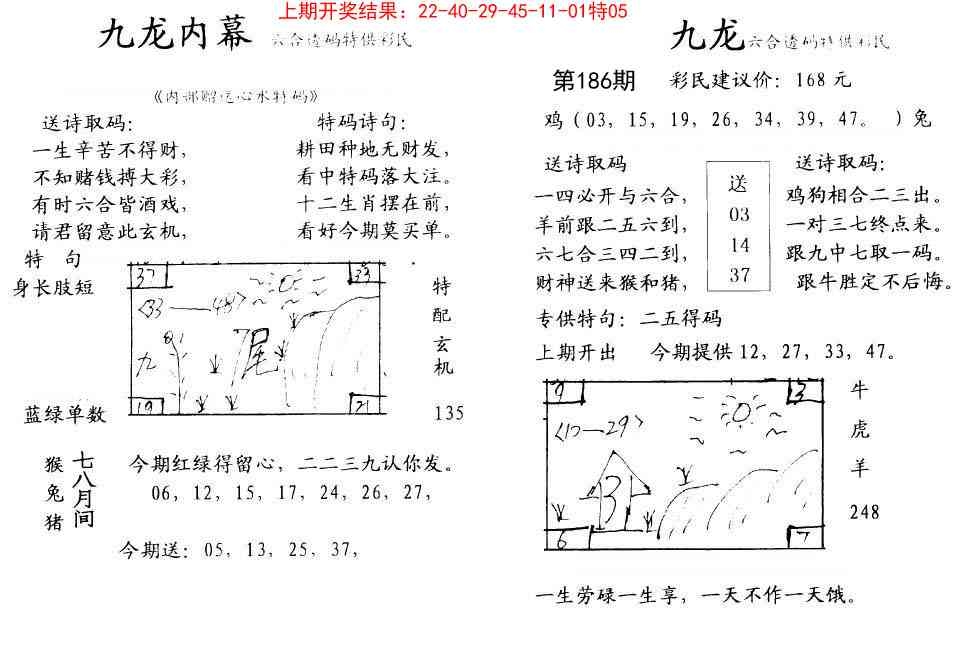 上期开奖结果：22-40-29-45-11-01特05
九龙内幕 六合透码特供彩民
《内部赠送心水特码》
送诗取码：
一生辛苦不得财，
不知赌钱搏大彩，
有时六合皆酒戏，
请君留意此玄机，
特码诗句：
耕田种地无财发，
看中特码落大注。
十二生肖摆在前，
看好今期莫买单。
特 句
身长肢短
蓝绿单数
37
33
<33——48>
九
尾
19
21
特
配
玄
机
135
猴
兔
猪
七八月间
今期红绿得留心，二二三九认你发。
06，12，15，17，24，26，27，
今期送：05，13，25，37，
九龙六合透码特供彩民
第186期 彩民建议价：168元
鸡（03，15，19，26，34，39，47。 ）兔
送诗取码
一四必开与六合，
羊前跟二五六到，
六七合三四二到，
财神送来猴和猪，
送
03
14
37
送诗取码：
鸡狗相合二三出。
一对三七终点来。
跟九中七取一码。
跟牛胜定不后悔。
专供特句：二五得码
上期开出 今期提供12，27，33，47。
9
13
<17—29>
3
6
7
牛
虎
羊
248
一生劳碌一生享，一天不作一天饿。